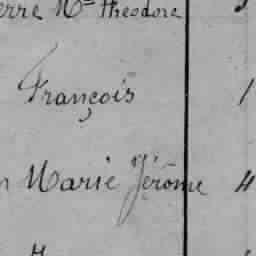 erre Mie Théodore
François 1
n Marie Jérôme 4